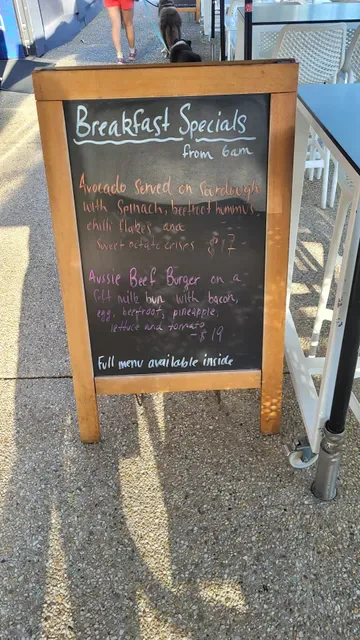 Breakfast Specials
from 6am
Avocado Served on Sourdough
with Spinach, beetroot hummus,
chilli flakes and
sweet potato crisps $17
Aussie Beef Burger on a
soft milk bun with bacon,
egg, beetroot, pineapple,
lettuce and tomato
- $19
Full menu available inside